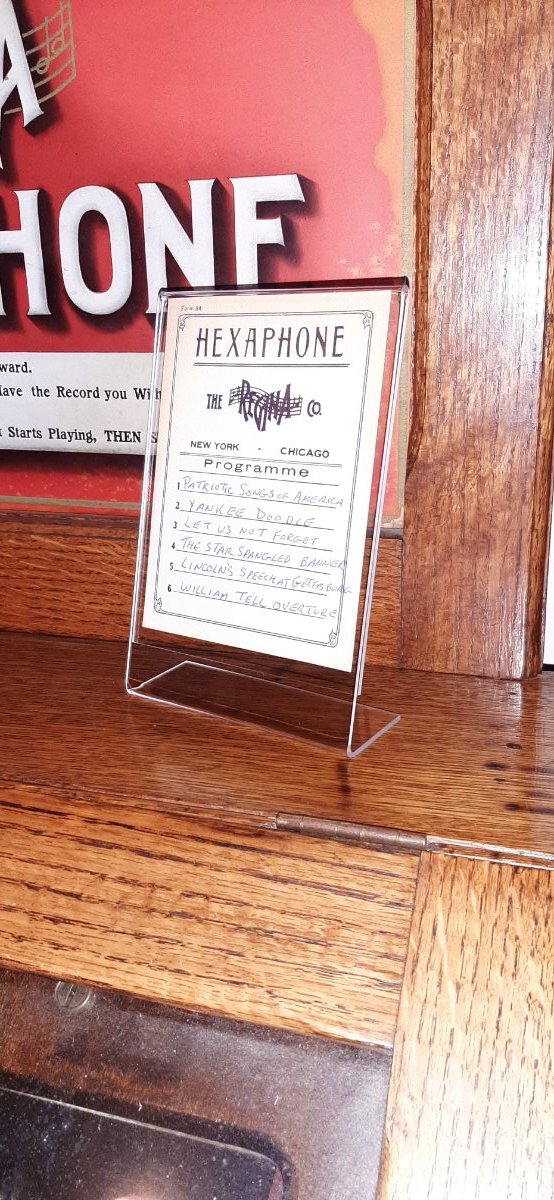 A
HONE
ward.
Have the Record you Wi
t Starts Playing, THEN S
Form 84
HEXAPHONE
THE REGINA CO.
NEW YORK - CHICAGO
Programme
1 PATRIOTIC SONGS OF AMERICA
2 YANKEE DOODLE
3 LET US NOT FORGET
4 THE STAR SPANGLED BANNER
5 LINCOLN'S SPEECH AT GETTYSBURG
6 WILLIAM TELL OVERTURE